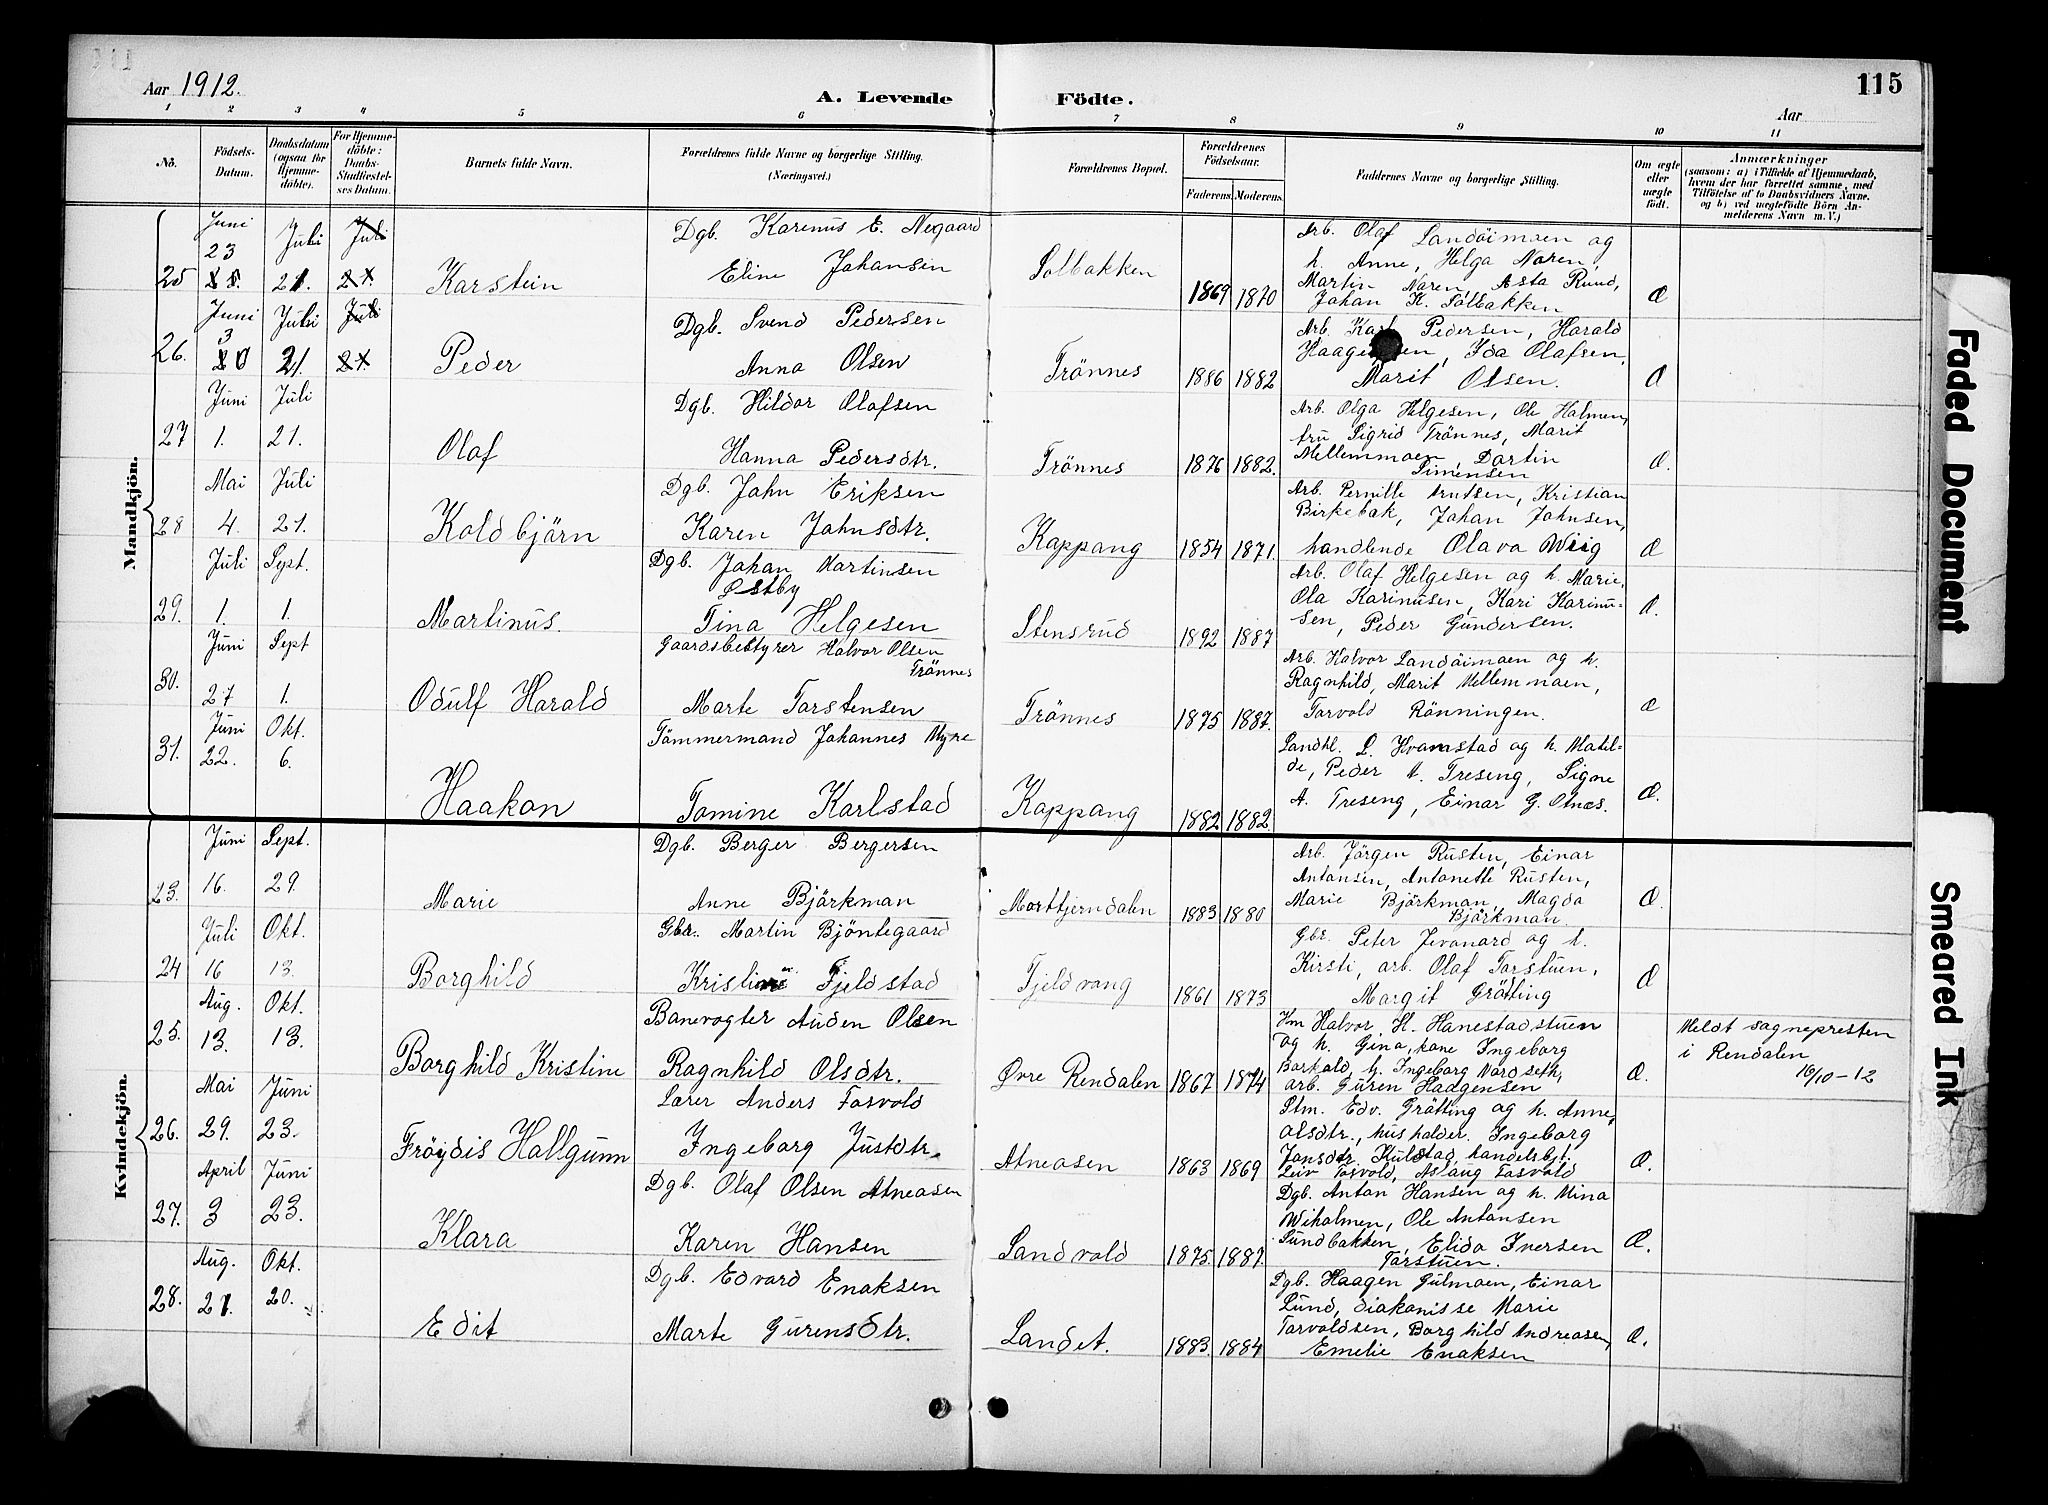 115
Aar 1912.
A. Levende Födte.
Aar
1 2 3 4 5 6 7 8 9 10 11
No.
Födsels-Datum.
Daabsdatum (ogsaa for Hjemmedöbte).
For Hjemmedöbte: Daabs-Stadfæstelses Datum.
Barnets fulde Navn.
Forældrenes fulde Navne og borgerlige Stilling.
(Næringsvei.)
Forældrenes Bopæl.
Forældrenes Födselsaar.
Faderens. Moderens.
Faddernes Navne og borgerlige Stilling.
Om ægte eller uægte födt.
Anmærkninger
(saasom: a) i Tilfælde af Hjemmedaab,
hvem der har forrettet samme, med
Tilföielse af to Daabsvidners Navne.
og b) ved uegtefödte Börn Anmelderens Navn m. V.)
Mandkjön.
25 Juni 23 Juli 21. Juli 21. Karstein
Dgb. Karenus E. Negaard
Eline Johansen
Solbakken 1869 1870
Arb. Olaf Landöimoen og
h. Anne, Helga Noren,
Martin Noren, Asta Ruud,
Johan K. Solbakken Æ
26. Juni 3 Juli 21. Juli 21. Peder
Dgb. Svend Pedersen
Anna Olsen
Trönnes 1886 1882
Arb. Karl Pedersen, Harald
Haagensen, Ida Olafsen,
Marit Olsen. Æ
27 Juni 1. Juli 21. Olaf
Dgb. Hildor Olafsen
Hanna Pedersdtr.
Trönnes 1876 1882.
Arb. Olga Helgesen, Ole Holmen,
fru Sigrid Trönnes, Marit
Mellemmoen, Dortin
Simensen Æ.
28 Mai 4. Juli 21. Koldbjörn
Dgb. John Eriksen
Karen Johnsdtr.
Koppang 1854 1871.
Arb. Pernille Knutsen, Kristian
Birkebak, Johan Johnsen,
handlende Olava Wiig Æ
29. Juli 1. Sept. 1. Martinus.
Dgb. Johan Martinsen
Østby
Tina Helgesen
Stensrud 1892 1887
Arb. Olaf Helgesen og h. Marie,
Ola Karinusen, Kari Karinu-
sen, Peder Gundersen. Æ.
30. Juni 27 Sept 1. Odulf Harald
Gaardsbestyrer Halvor Olsen
Trönnes
Marte Torstensen
Trönnes 1875 1887.
Arb. Halvor Landöimoen og h.
Ragnhild, Marit Mellemmoen,
Torvald Rönningen. Æ
31. Juni 22. Okt. 6. Haakon
Tömmermand Johannes Myre
Tomine Karlstad
Koppang 1882 1882.
Landhl. L. Kvarnstad og h. Matil-
de, Peder A. Treseng, Signe
A. Treseng, Einar G. Otnes. Æ.
Kvindekjön.
23. Juni 16. Sept. 29. Marie
Dgb. Berger Bergersen
Anne Björkman
Morttjerndalen 1883 1880
Arb. Jörgen Rusten, Einar
Antonsen, Antonette Rusten,
Marie Björkman, Magda
Björkman. Æ.
24 Juli 16 Okt. 13. Borghild
Gbr. Martin Bjöntegaard
Fjeldstad
Fjeldvang 1861 1873
Gbr. Peter Jevanord og h.
Kirsti, arb. Olaf Torstuen,
Margit Grötting Æ
25. Aug. 13. Okt. 13. Borghild Kristine
Banevogter Auden Olsen
Ragnhild Olsdtr.
Øvre Rendalen 1867 1874
Km Halvor H. Hanestadstuen
og h. Gina, kone Ingeborg
Barkald, h. Ingeborg Nordseth,
arb. Guren Haagensen Æ.
Meldt sognepresten
i Rendalen
16/10-12
26. Mai 29. Juni 23. Fröydis Hallgunn
Lærer Anders Fosvold
Ingeborg Justdtr.
Atneosen 1863 1869
Stm. Edv. Grötting og h. Anne
Olsdtr., husholder. Ingeborg
Jonsdtr Kulstad, handelsbet.
Leiv Fosvold, Aslaug Fosvold Æ.
27. April 3 Juni 23. Klara
Dgb. Olaf Olsen Atneosen
Karen Hansen
Sandvold 1875. 1887.
Dgb. Anton Hansen og h. Mina
Wiholmen, Ole Antonsen
Sundbakken, Elida Iversen
Torstuen. Æ.
28. Aug. 21. Okt. 20. Edit
Dgb. Edvard Enoksen
Marte Gurensdtr.
Landet. 1883. 1884
Dgb. Haagen Gulmoen, Einar
Lund, diakonisse Marie
Torvoldsen, Borghild Andreasen,
Emelie Enoksen Æ.
Faded Document
Smeared Ink